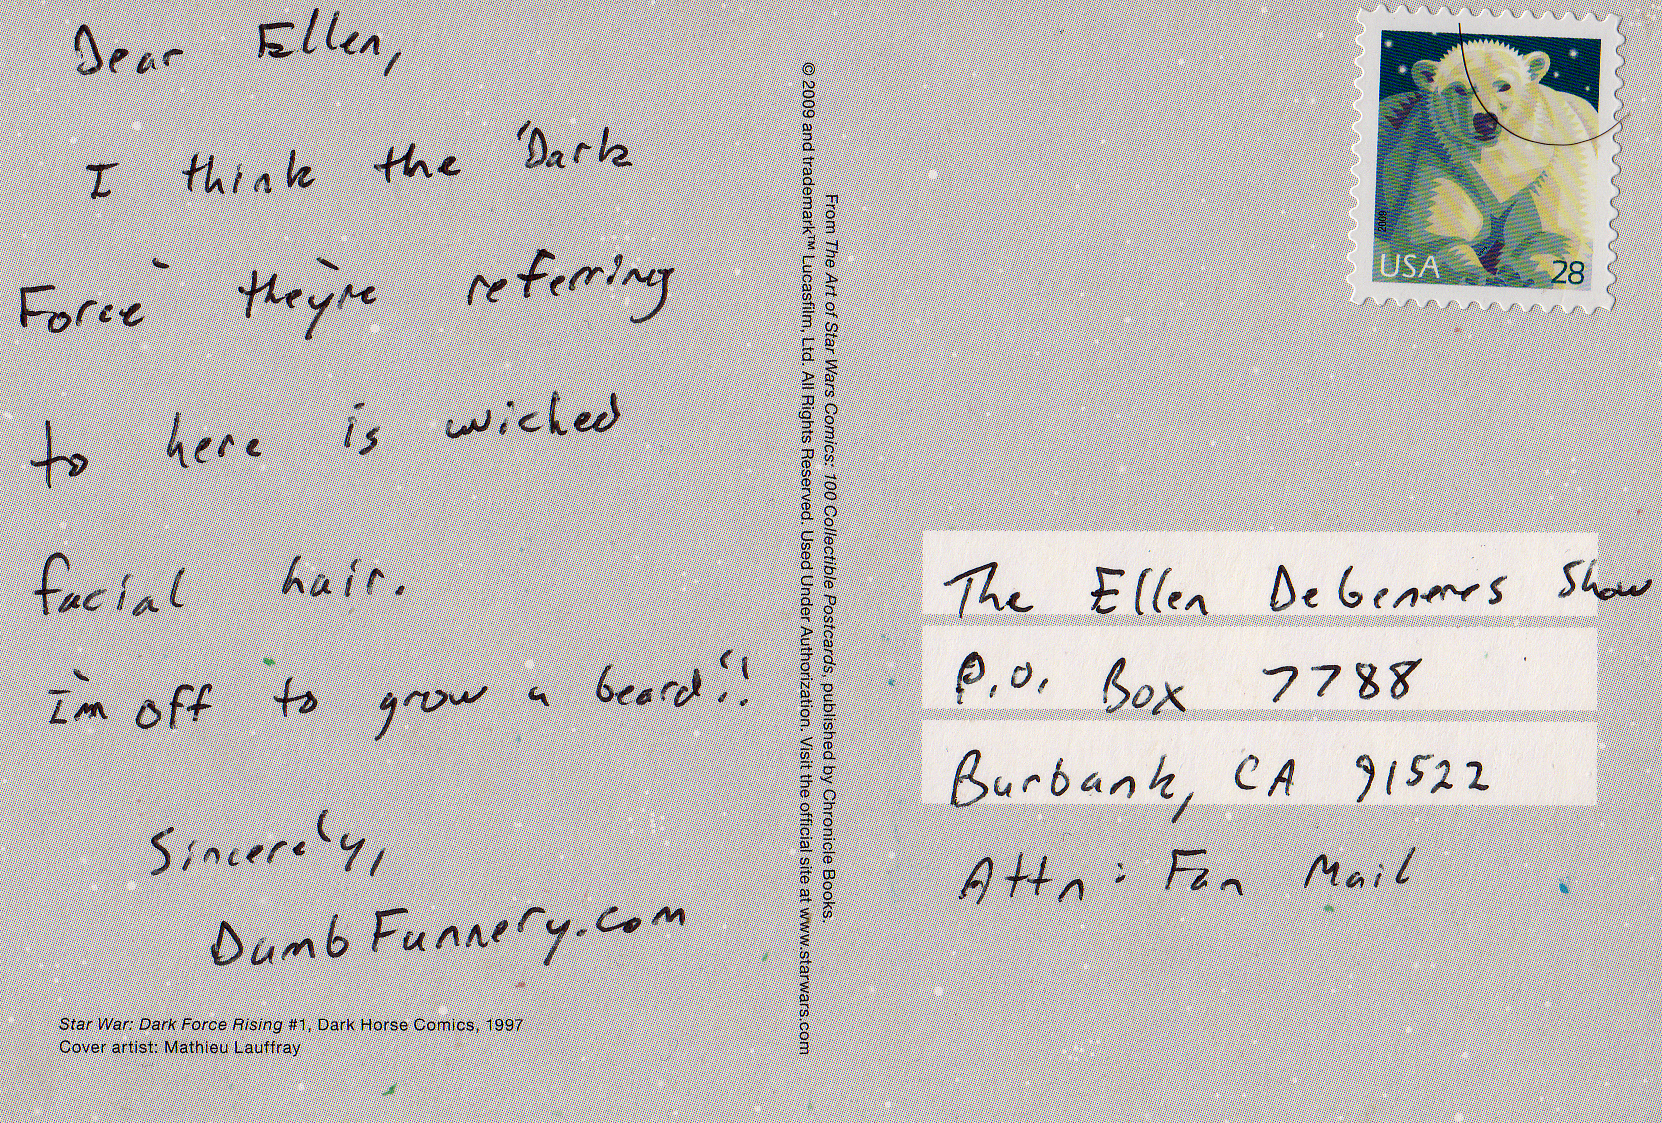 Dear Ellen,
I think the "Dark
Force" they're referring
to here is wicked
facial hair.
I'm off to grow a beard!!
Sincerely,
DumbFunnery.com
Star War: Dark Force Rising #1, Dark Horse Comics, 1997
Cover artist: Mathieu Lauffray
From The Art of Star Wars Comics: 100 Collectible Postcards, published by Chronicle Books.
© 2009 and trademark™ Lucasfilm, Ltd. All Rights Reserved. Used Under Authorization. Visit the official site at www.starwars.com
2009
USA 28
The Ellen DeGeneres Show
P.O. Box 7788
Burbank, CA 91522
Attn: Fan Mail